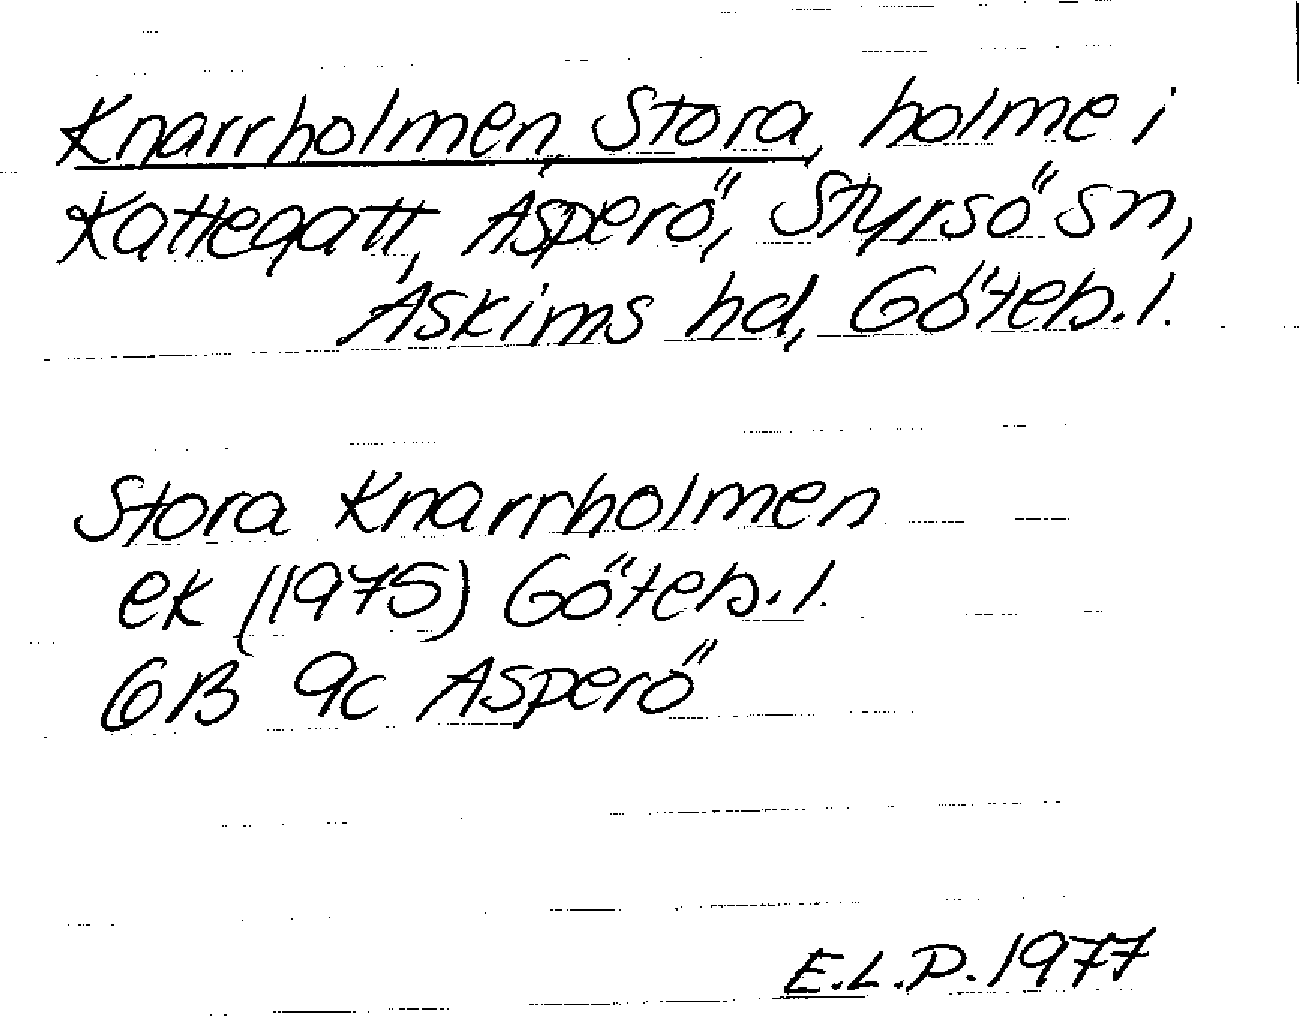 Knarrholmen, Stora, holme i
Kattegatt, Asperö, Styrsö sn,
Askims hd, Göteb. l.
Stora Knarrholmen
ek (1975) Göteb. l.
6B 9c Asperö
E.L.P. 1977